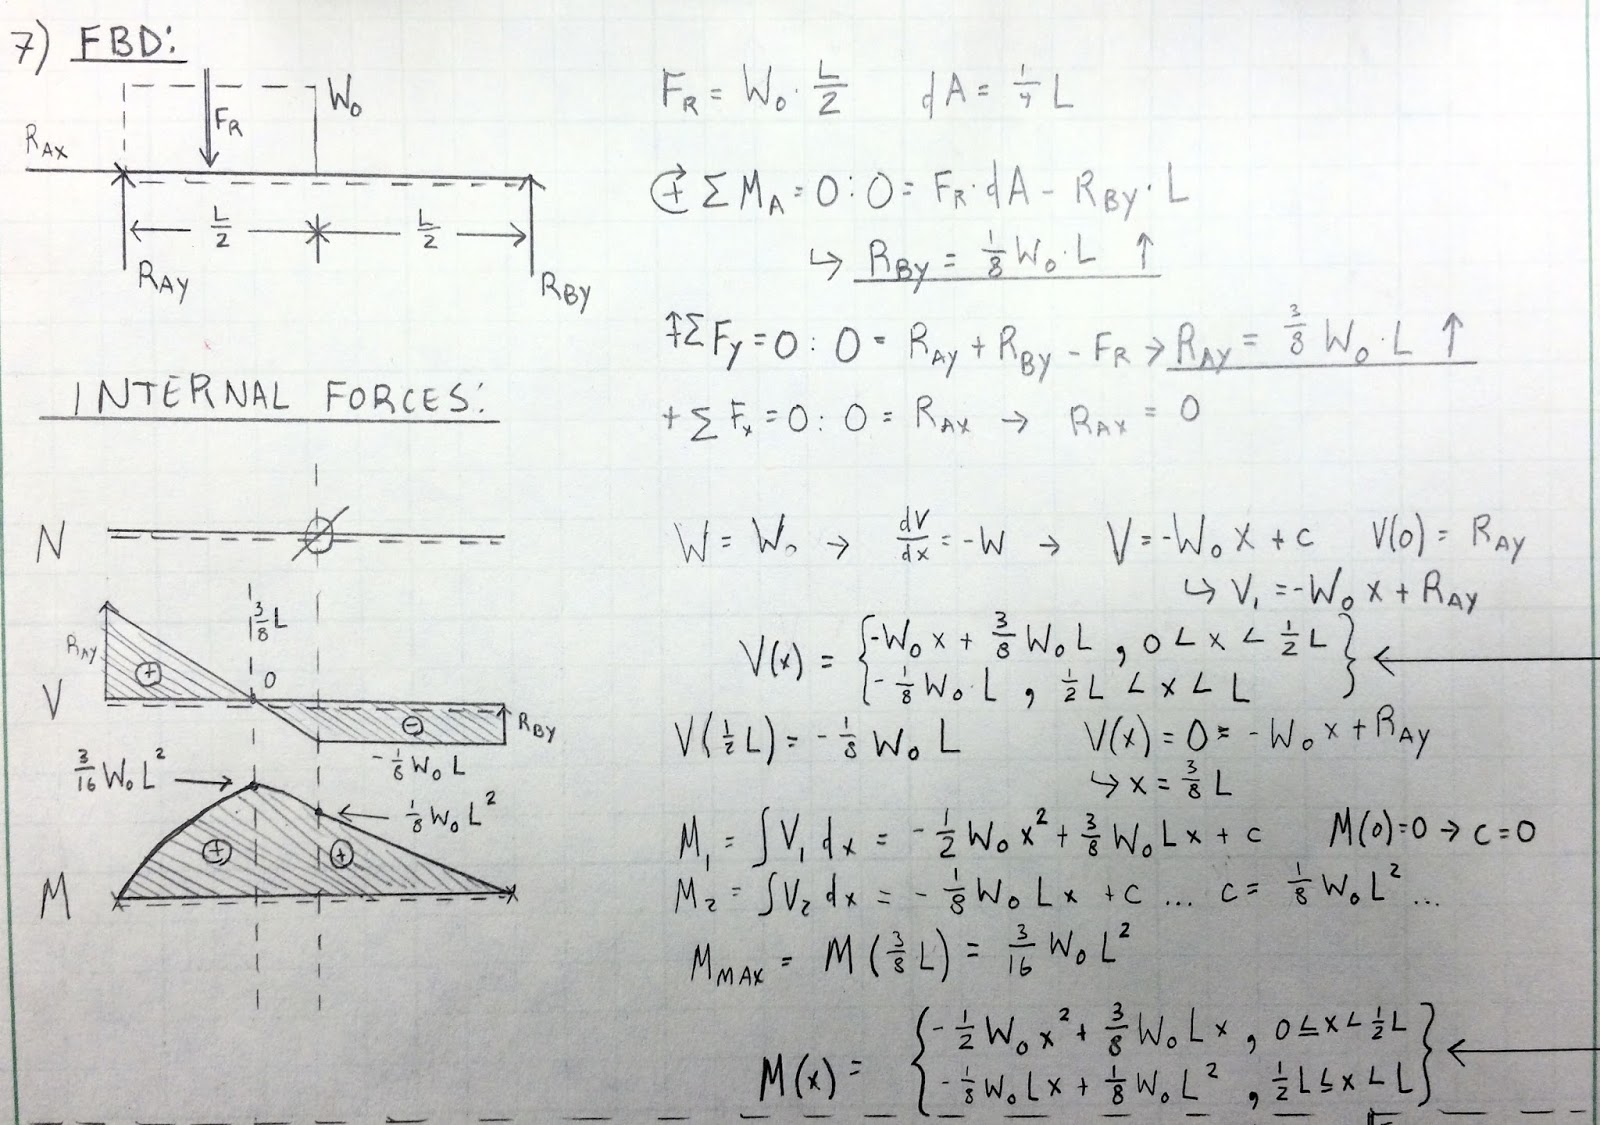 7) FBD:
W₀
F_R
R_AX
L/2 L/2
R_AY R_BY
F_R = W₀ · L/2 dA = 1/4 L
+ ΣM_A = 0 : 0 = F_R · dA - R_BY · L
↳ R_BY = 1/8 W₀ · L ↑
+↑ ΣF_Y = 0 : 0 = R_AY + R_BY - F_R → R_AY = 3/8 W₀ · L ↑
+ ΣF_x = 0 : 0 = R_AX → R_AX = 0
INTERNAL FORCES:
N ∅
3/8 L
R_AY + 0
V - R_BY
-1/8 W₀ L
3/16 W₀ L² →
← 1/8 W₀ L²
+ +
M
W = W₀ → dV/dx = -W → V = -W₀ x + c V(0) = R_AY
↳ V₁ = -W₀ x + R_AY
V(x) = { -W₀ x + 3/8 W₀ L , 0 < x < 1/2 L } ←
{ -1/8 W₀ · L , 1/2 L < x < L }
V(1/2 L) = -1/8 W₀ L V(x) = 0 = -W₀ x + R_AY
↳ x = 3/8 L
M₁ = ∫V₁ dx = -1/2 W₀ x² + 3/8 W₀ L x + c M(0) = 0 → c = 0
M₂ = ∫V₂ dx = -1/8 W₀ L x + c ... c = 1/8 W₀ L² ...
M_MAX = M(3/8 L) = 3/16 W₀ L²
M(x) = { -1/2 W₀ x² + 3/8 W₀ L x , 0 ≤ x < 1/2 L } ←
{ -1/8 W₀ L x + 1/8 W₀ L² , 1/2 L ≤ x < L }